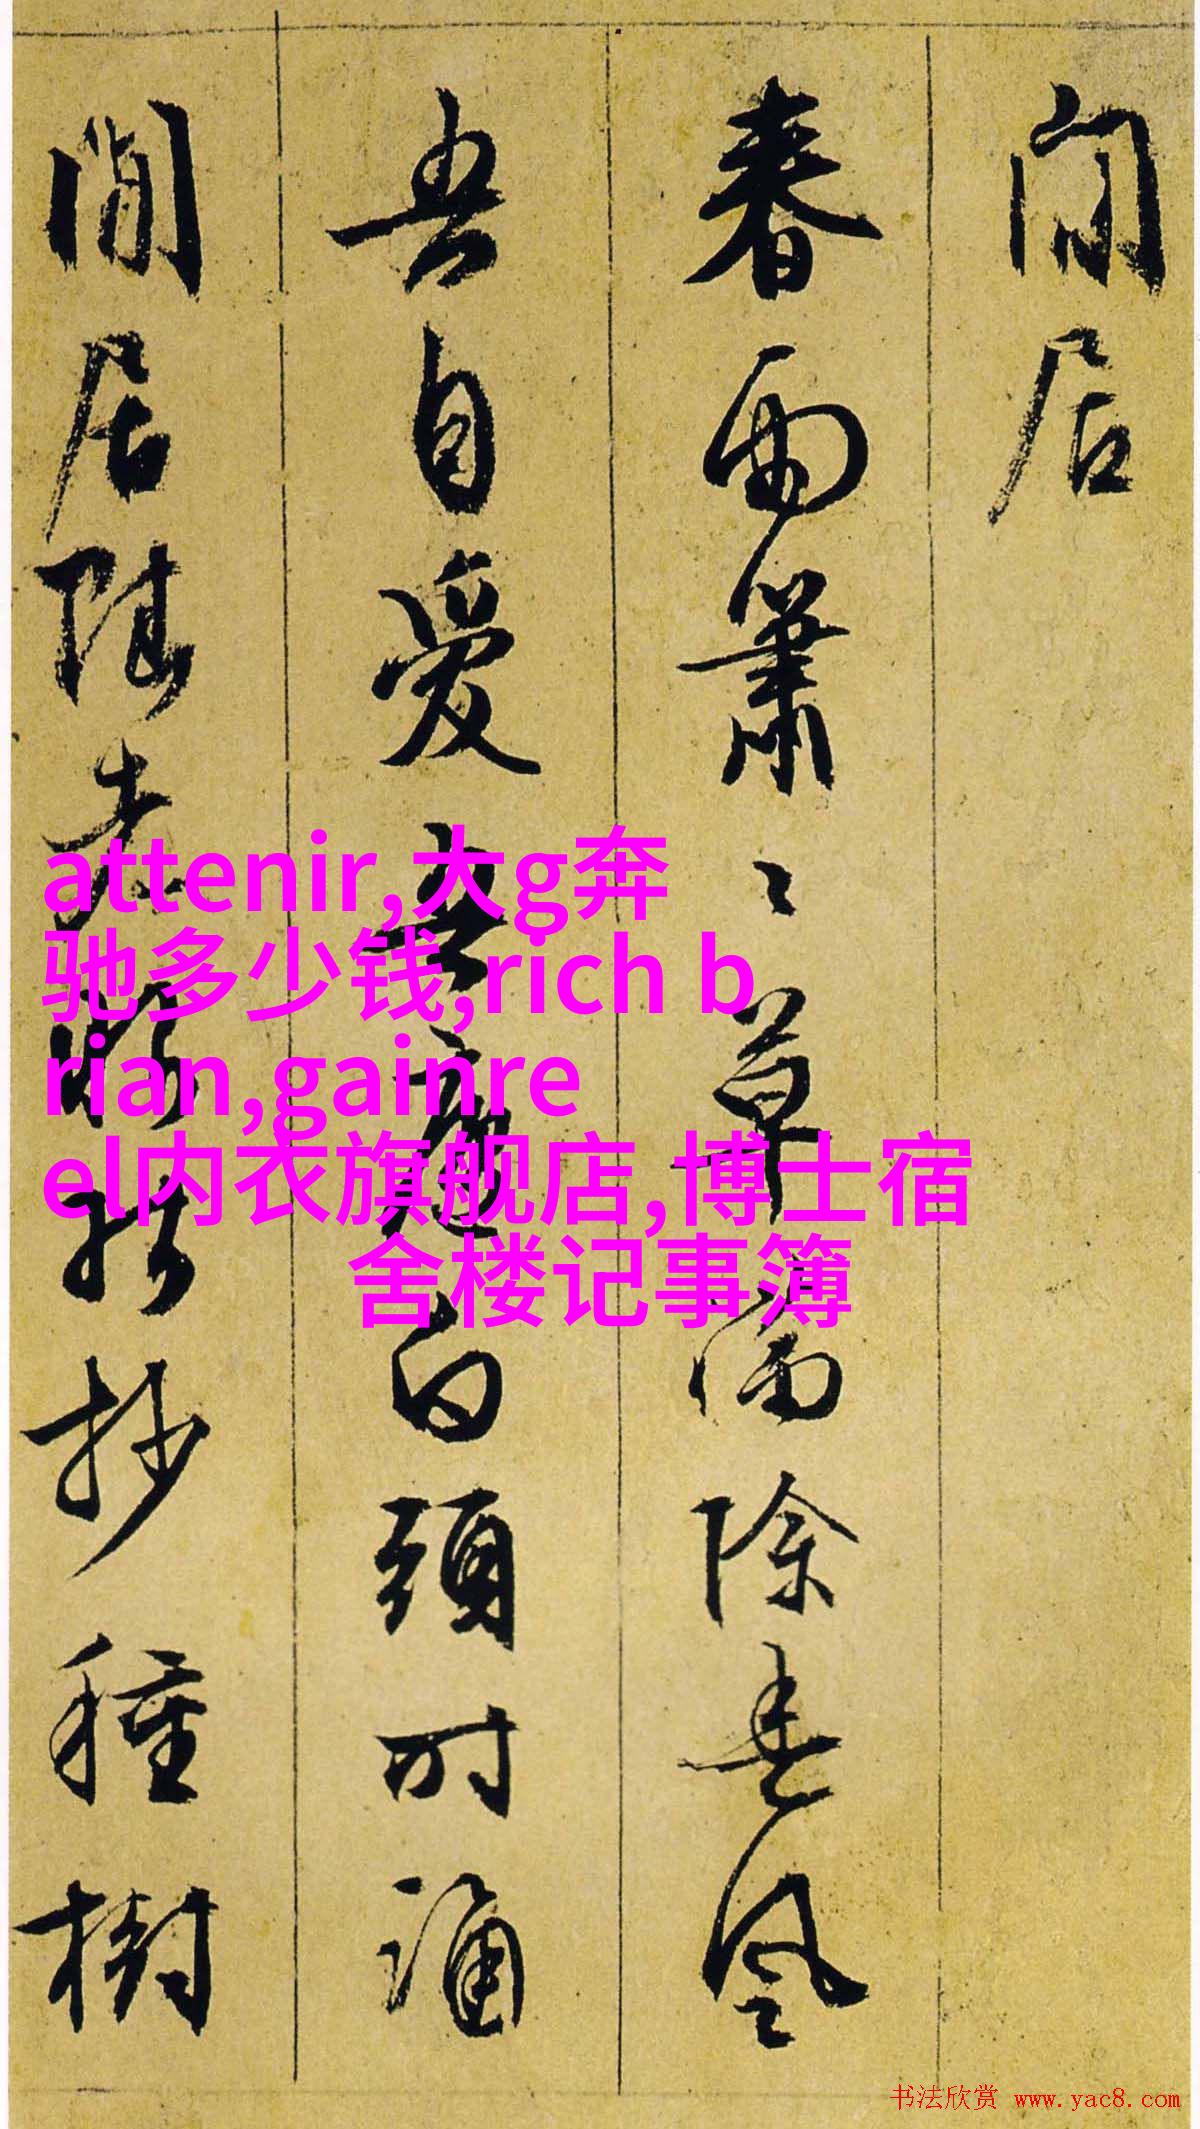 閒居
春雨蕭〻草滿除春風
吾自愛吾廬白頭时誦
閒居賦老眼猶抄種樹
attenir,大g奔
驰多少钱,rich b
rian,gainre
el内衣旗舰店,博士宿
舍楼记事簿
书法欣赏 www.yac8.com